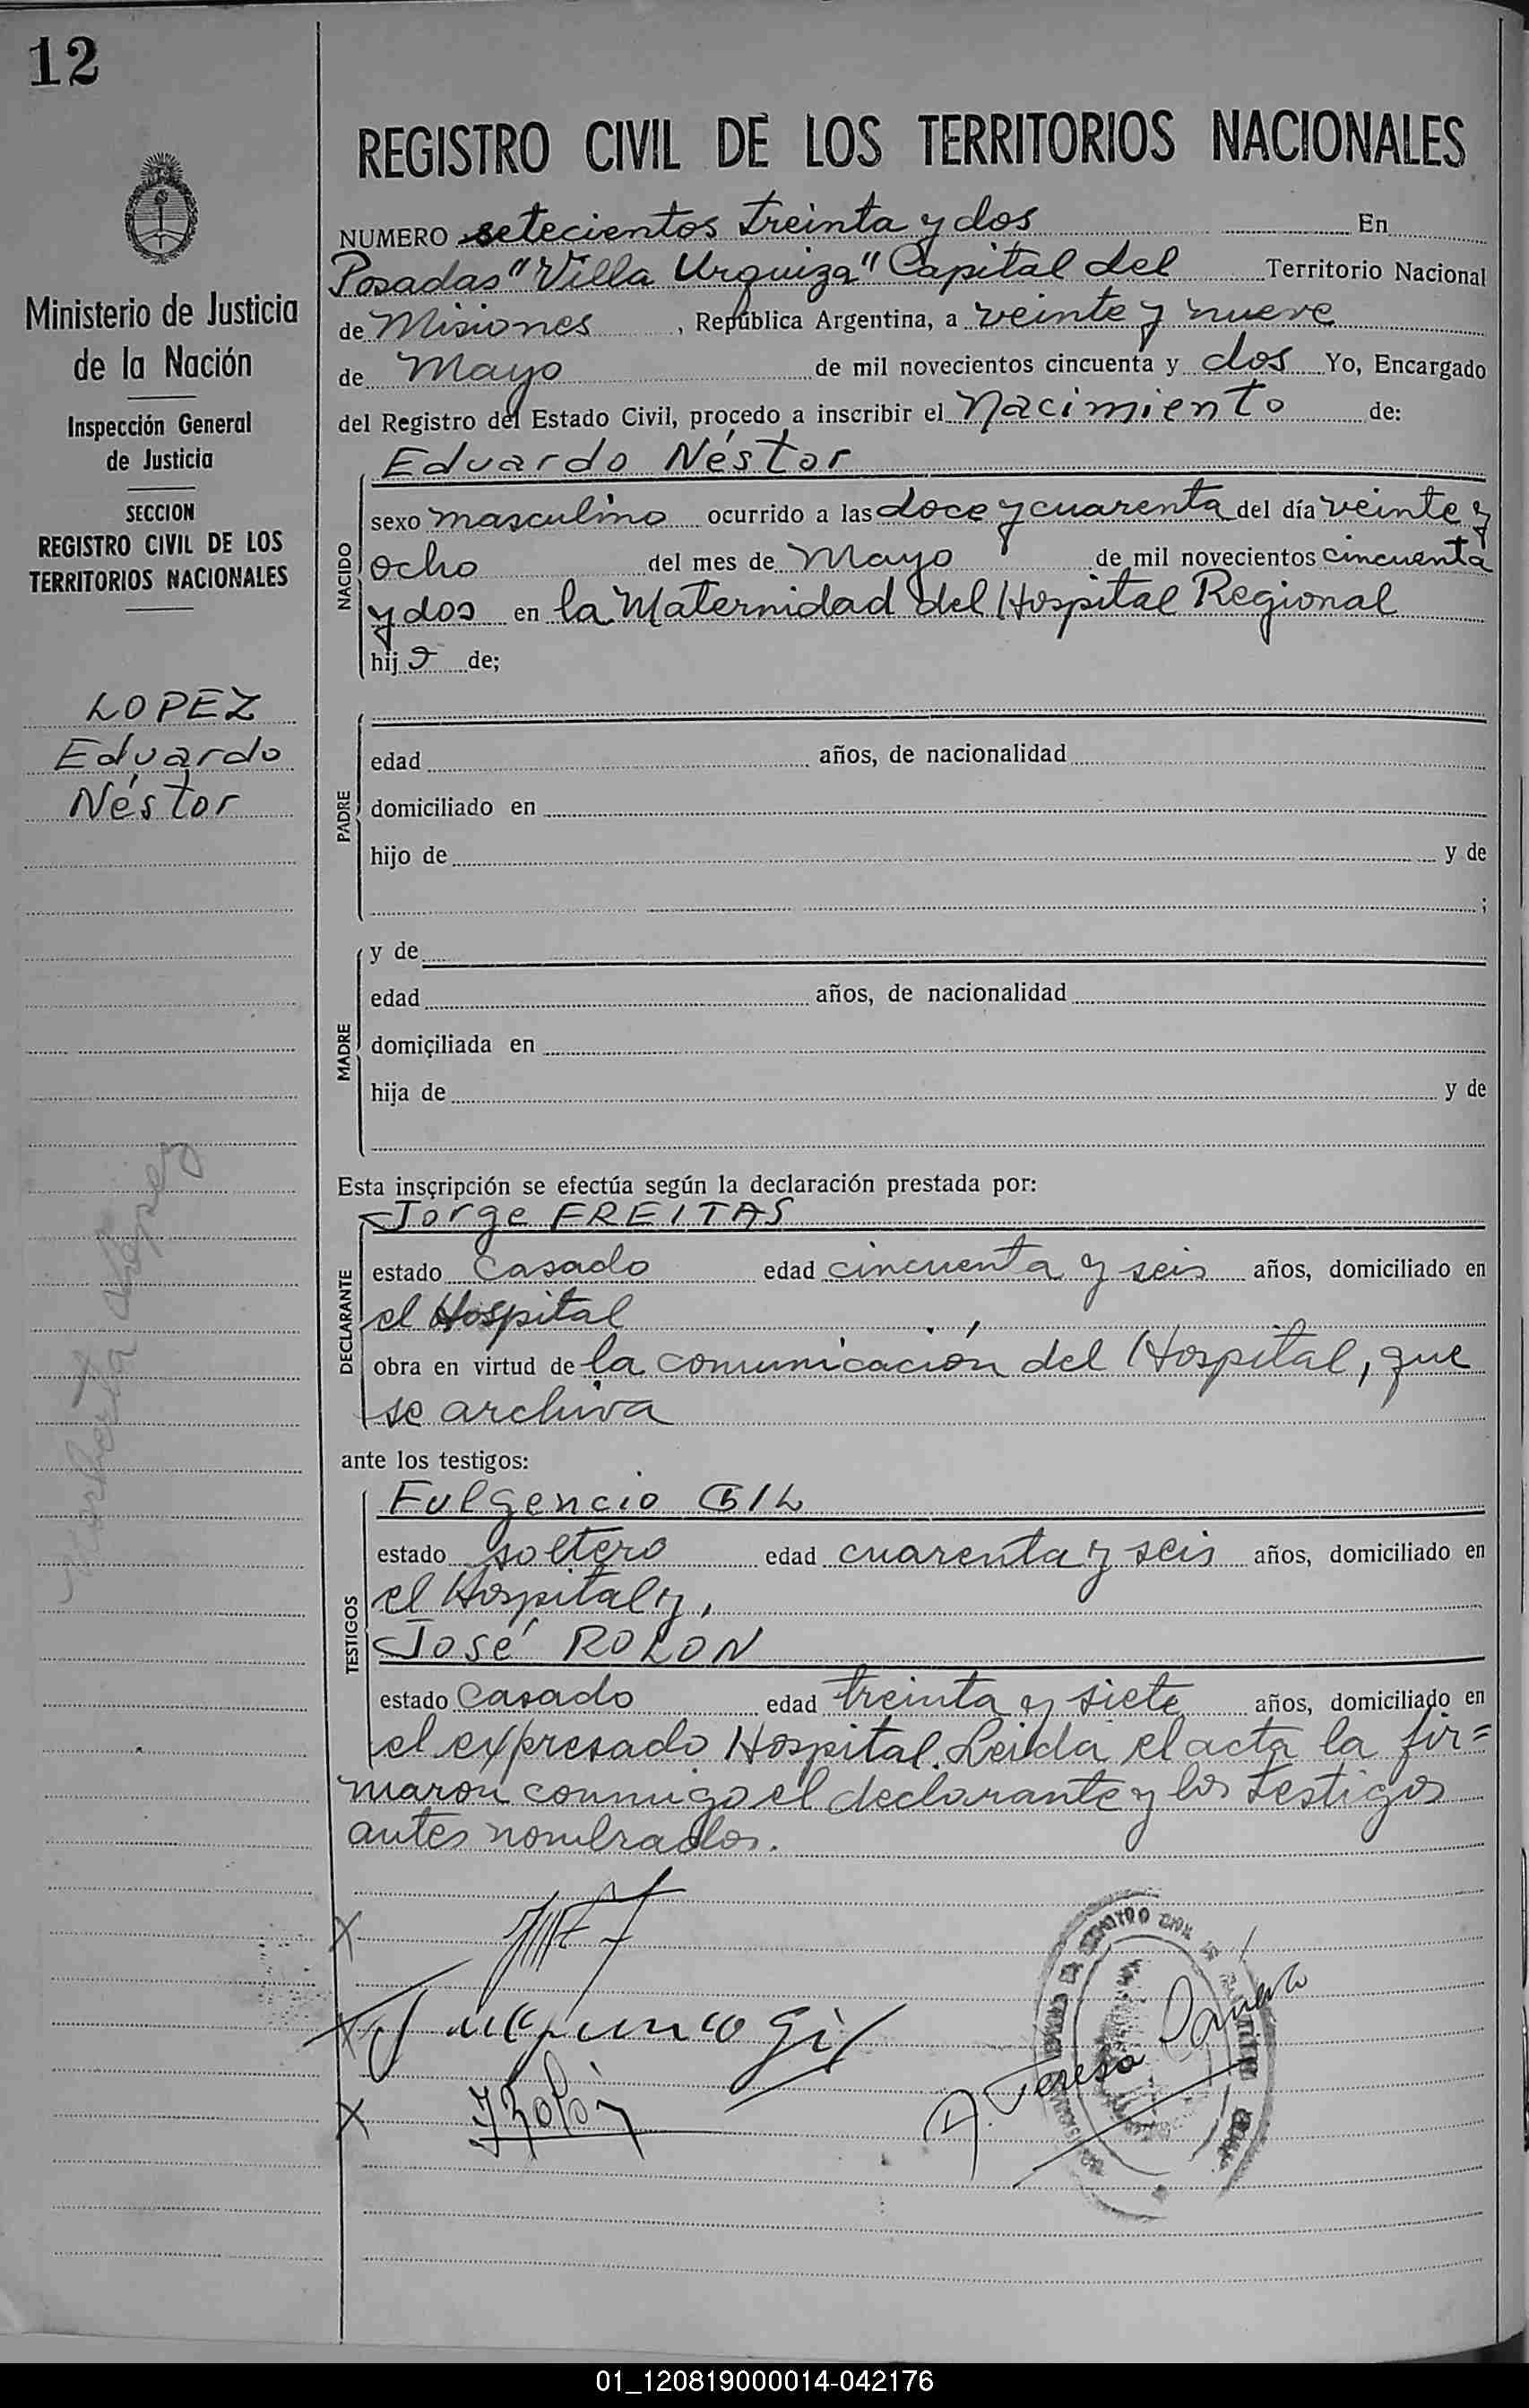 12
Ministerio de Justicia
de la Nación
Inspección General
de Justicia
SECCION
REGISTRO CIVIL DE LOS
TERRITORIOS NACIONALES
LOPEZ
Eduardo
Néstor
López
REGISTRO CIVIL DE LOS TERRITORIOS NACIONALES
NUMERO setecientos treinta y dos En
Posadas "Villa Urquiza" Capital del Territorio Nacional
de Misiones, República Argentina, a veinte y nueve
de Mayo de mil novecientos cincuenta y dos Yo, Encargado
del Registro del Estado Civil, procedo a inscribir el Nacimiento de:
Eduardo Néstor
NACIDO
sexo masculino ocurrido a las doce y cuarenta del día veinte y
ocho del mes de Mayo de mil novecientos cincuenta
y dos en la Maternidad del Hospital Regional
hijo de;
PADRE
edad años, de nacionalidad
domiciliado en
hijo de y de
;
MADRE
y de
edad años, de nacionalidad
domiciliada en
hija de y de
Esta inscripción se efectúa según la declaración prestada por:
Jorge FREITAS
DECLARANTE
estado casado edad cincuenta y seis años, domiciliado en
el Hospital
obra en virtud de la comunicación del Hospital, que
se archiva
ante los testigos:
Fulgencio GIL
TESTIGOS
estado soltero edad cuarenta y seis años, domiciliado en
el Hospital y,
José ROLON
estado casado edad treinta y siete años, domiciliado en
el expresado Hospital. Leida el acta la fir=
maron conmigo el declarante y los testigos
antes nombrados.
Fulgencio Gil
J Rolón
Teresa
01_120819000014-042176